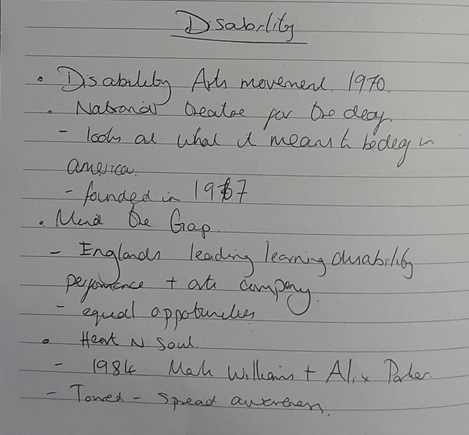 Disability
• Disability Arts movement 1970.
• National theatre for the deaf.
- looks at what it means to be deaf in
america.
- founded in 1967
• Mind the Gap.
- Englands leading learning disability
performance + arts company.
- equal oppotunities
• Heart N Soul.
- 1984 Mark Williams + Alix Parker.
- Toured - spread awareness.